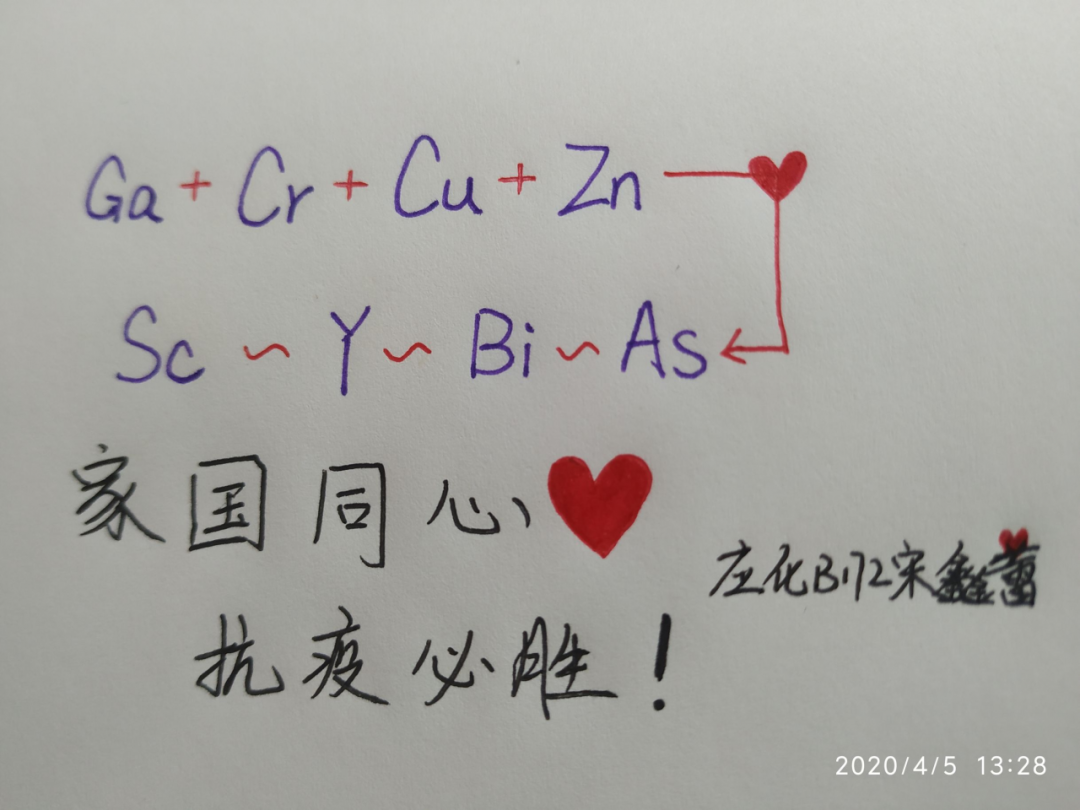 Ga + Cr + Cu + Zn
Sc ~ Y ~ Bi ~ As
家国同心
应化B172宋鑫蕾
抗疫必胜！
2020/4/5 13:28